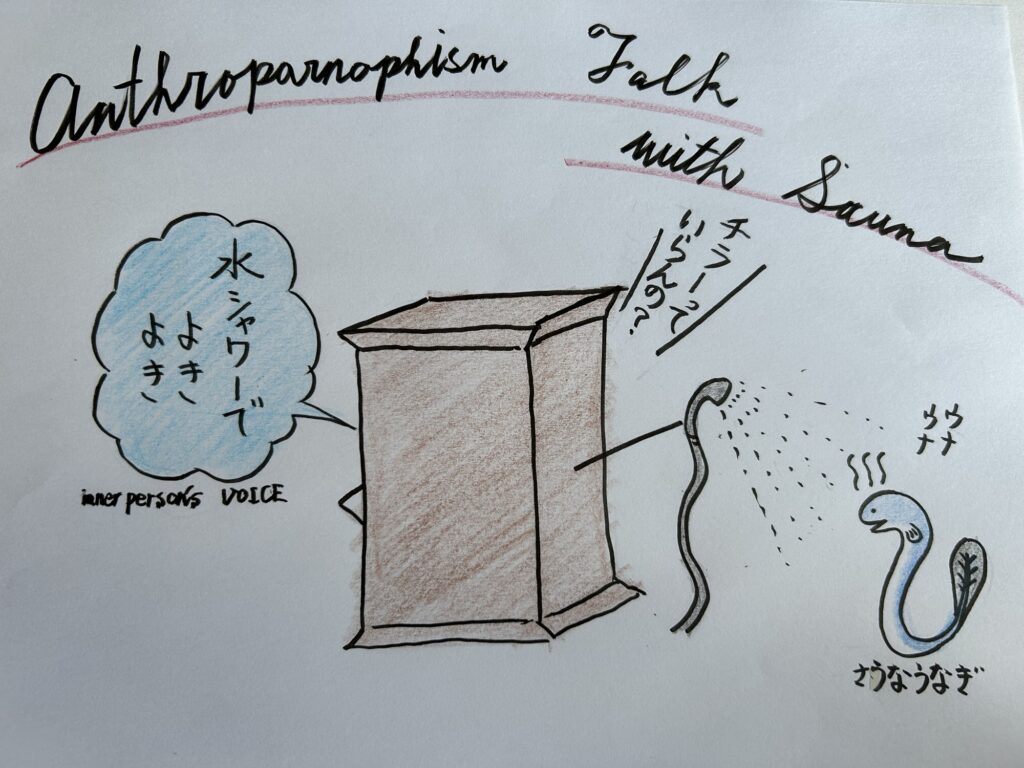 Anthroparnophism Talk
with Sauna
チラーって
いらんの?
水シャワーで
よき、
よき、
inner person's VOICE
ウナ
ウナ
さうなうなぎ